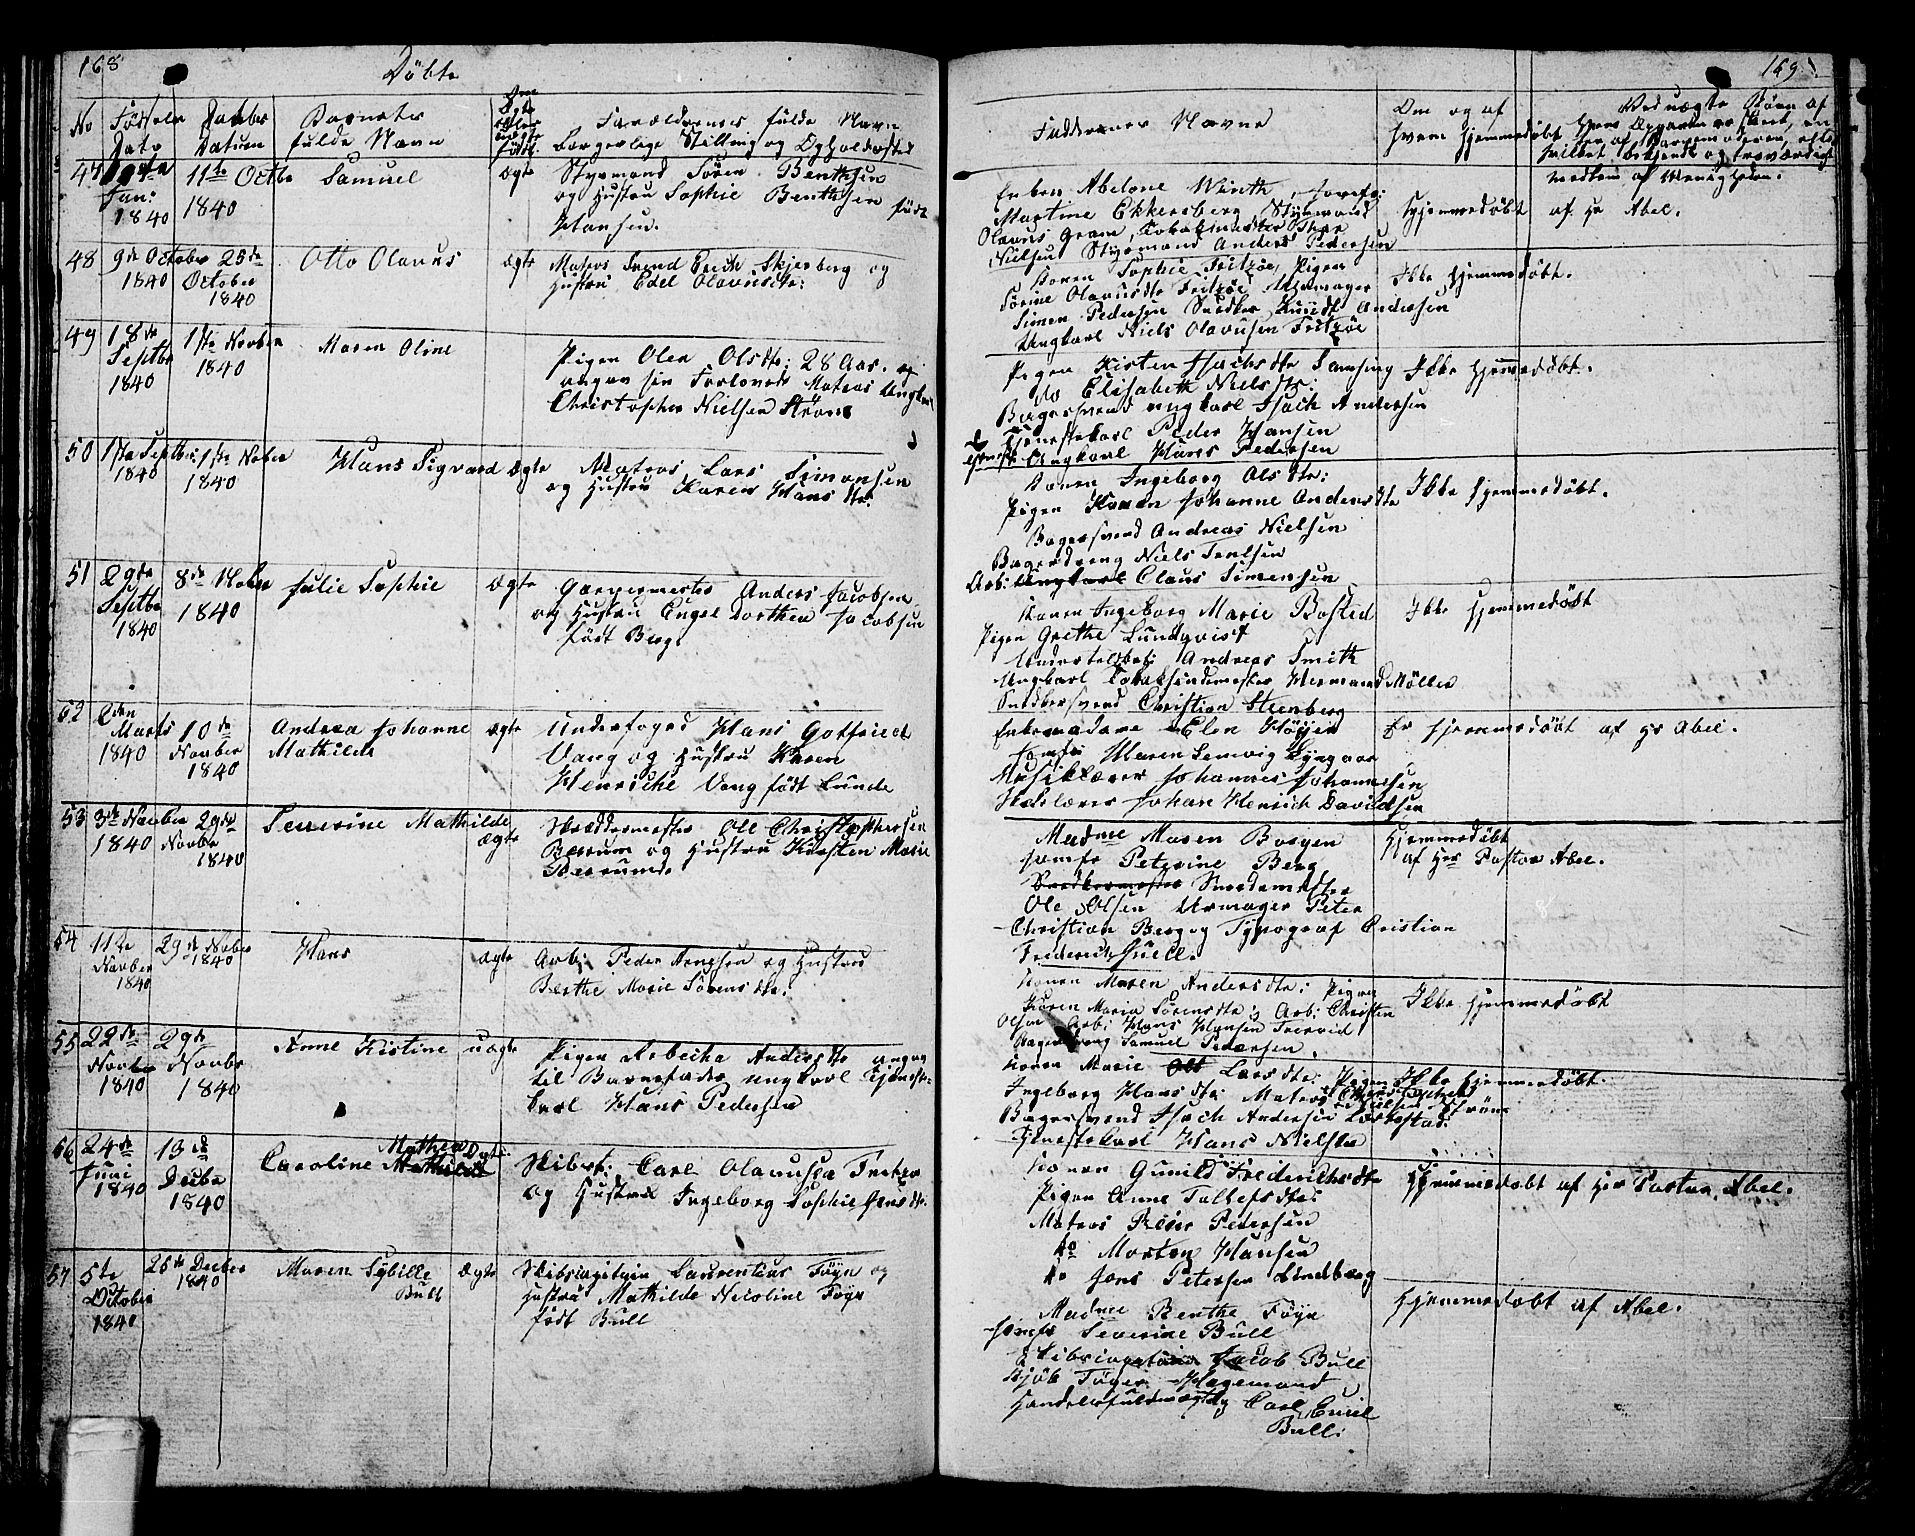 168
Döbte
No
Födsels
Dato
Daabs
Datum
Barnets
fulde Navn
Om
Ægte
eller
uægte
født.
Forældrenes fulde Navn
borgerlige Stilling og Opholdssted
47
Jan:
1840
11te Octbr
1840
Samuel
Ægte
Styrmand Sören Benthsen
og Hustru Sophie Benthsen född
Hansen.
48
9de October
1840
25de
October
1840
Otto Olavus
Ægte
Matros Svend Erich Skjerberg og
Hustru Edel Olavusdtr:
49
18de
Septbr
1840
1ste Novber
1840
Maren Oline
Pigen Olea Olsdtr: 28 Aar. og
angav sin Forlovede Matros Ungkarl
Christopher Nielsen Ström
50
1ste Septbr:
1840
1ste Nober
1840
Hans Sigvard
Ægte
Matros Lars Simonsen
og Hustru Karen Hansdtr.
51
29de
Septbr
1840
8de Nober
1840
Julie Sophie
Ægte
Garvermester Anders Jacobsen
og Hustru Engel Dorthea Jacobsen
født Berg.
52
2den
Marts
1840
10de
Novber
1840
Andrea Johanne
Mathilde
Ægte
Underfoged Hans Gotfried
Vang og Hustru Karen
Henriche Vang født Lunde
53
3de Novber
1840
29de
Novbr
1840
Severine Mathilde
Ægte
Skræddermester Ole Christophersen
Bærum og Hustru Kirsten Marie
Bærum.
54
11te
Novber
1840
29de Nober
1840
Hans
Ægte
Arb: Peder Arnesen og Hustru
Berthe Marie Sörensdtr:
55
22de
Novbr
1840
29de
Novbr
1840
Anne Kistine
uægte
Pigen Rebecka Andersdtr angav
til Barnefader ungkarl Tjeneste-
karl Hans Pedersen
56
24de
Juni
1840
13de
Decbr
1840
Mathea
Caroline Mathilde
Ægte
Skibst: Carl Olavusen Fritzöe
og Hustrue Ingeborg Sophie Jensdtr.
57
5te
October
1840
25de Decber
1840
Maren Sybille
Bull
Ægte
Skibscapitain Laurentius Föyn og
Hustru Mathilde Nicoline Föyn
født Bull
169
Faddernes Navne
Om og af
hvem hjemmedøbt
Ved uægte Börn af
Enken Abelone Winth, Jomfr:
Martine Ekkersberg Styrmand
Olavus Gram,
Nielsen Styrmand Anders Pedersen
Hjemmedøbt af Hr Abel.
Konen Sophie Fritzöe, Pigen
Sörine Olavusdtr Fritzöe,
Simen Pedersen Snedker Knudt Andersen
Ungkarl Niels Olavusen Fritzöe
Ikke hjemmedøbt.
Pigen Kirsten Isachsdtr Samsing
do Elisabeth Nielsdtr:
Bagersvend ungkarl Isach Andersen
Tjenestekarl Peder Hansen
Ungkarl Hans Pedersen
Ikke hjemmedøbt.
Konen Ingeborg Olsdtr:
Pigen Karen Johanne Andersdtr
Bagersvend Andreas Nielsen
Bagerdreng Niels
Arb: Ungkarl Claus Simensen
Ikke hjemmedøbt.
Konen Ingeborg Marie Bosted
Pigen Grethe Lundqvist
Andreas Smith
Ungkarl Tobakspindemester Hermand Møller
Snedkersvend Christian Steenberg
Ikke hjemmedøbt
Enkemadame Elen Höyer
Jomfr: Maren Lemvig Lyngaas
Musiklærer Johannes Johannesen
Johan Henrich Davidsen
Er hjemmedøbt af Hr Abel.
Madme Maren Borgen
Jomfr Peterine Berg
Snedkermester Smedemester
Ole Olsen Urmager Peter
Christian Berg og Typograf Cristian
Frederich Juell.
Hjemmedøbt
af Her Pastor Abel.
Konen Maren Andersdtr: Pigen
Karen Maria Sörensdtr: Arb: Christen
Olsen Arb: Hans Hansen
Samuel Pedersen.
Ikke hjemmedøbt
Konen Marie Ole Larsdtr: Pigen
Ingeborg Hansdtr: Matros
Bagersvend Isach Andersen
Tjenestekarl Hans Nielsen
Ikke hjemmedøbt.
Konen Gunild Frederichsdtr
Pigen Anne Tollefsdtr
Matros Peder Pedersen
do Morten Hansen
do Jens Petersen Lindberg
Hjemmedøbt af Her Pastor Abel.
Madme Benthe Föyn
Jomfr Severine Bull
Skibscapitain Jacob Bull
Hagemand
Handelsfuldmægtig Carl Emil
Bull.
Hjemmedøbt af Abel.